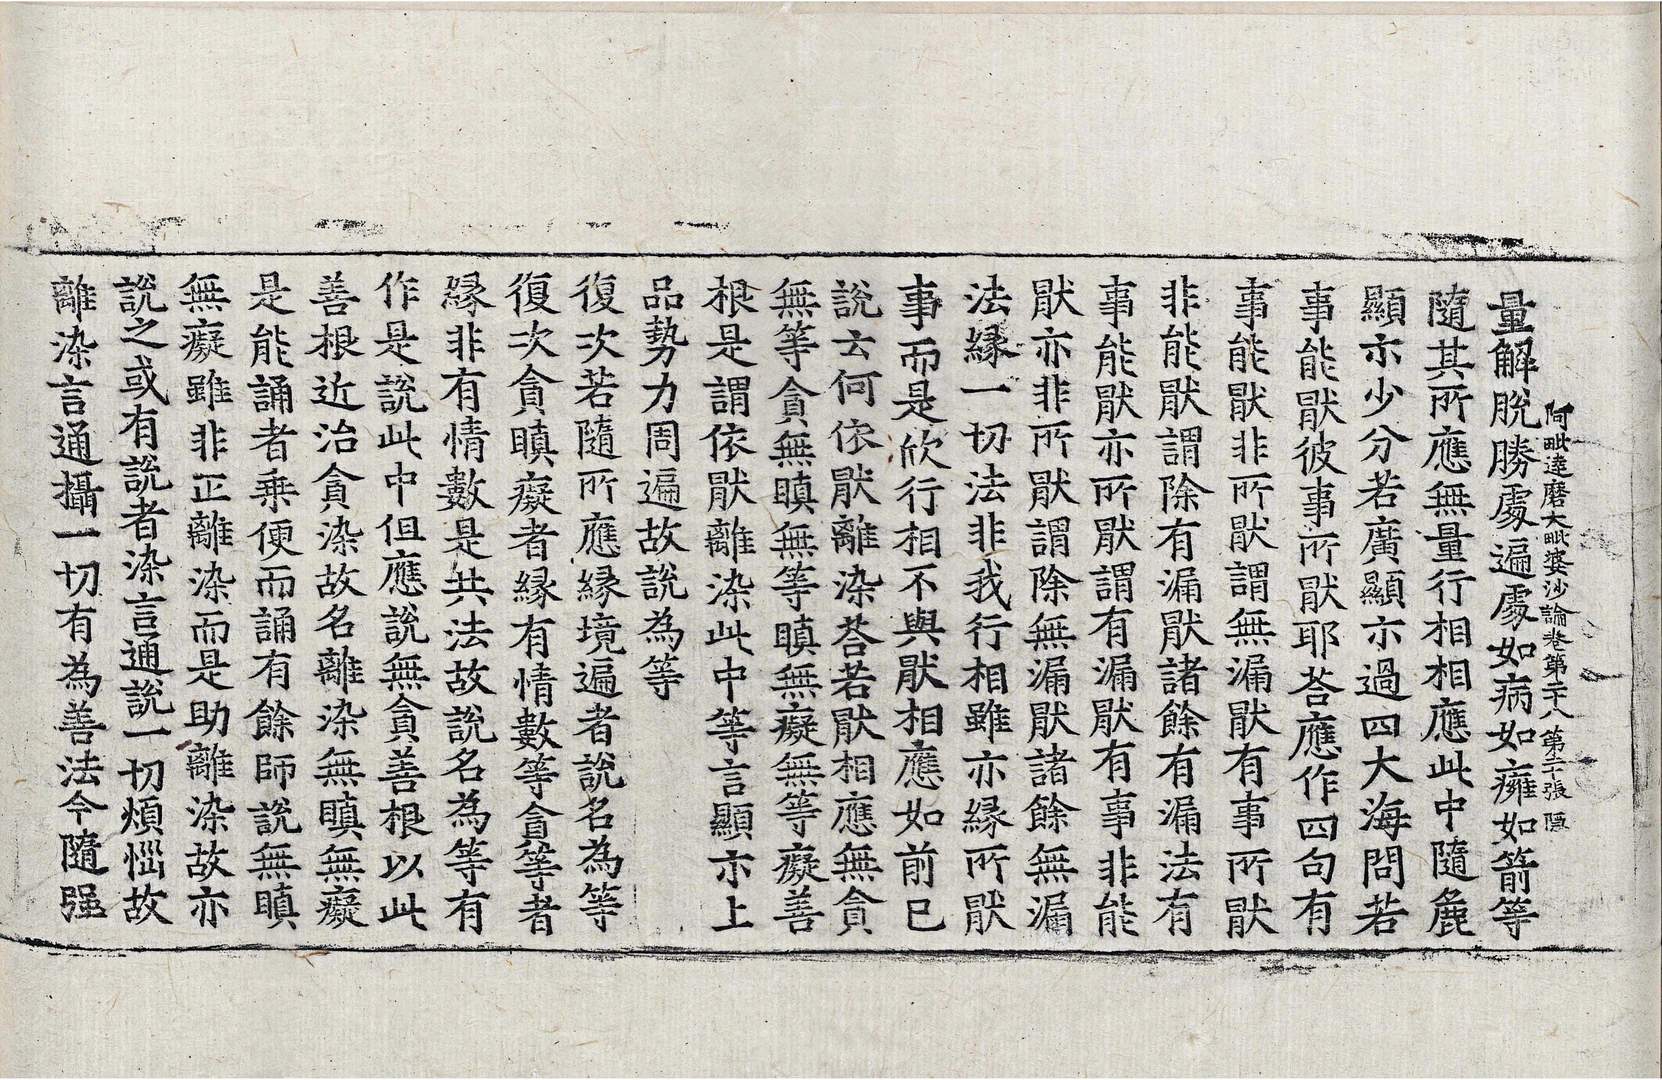 阿毗達磨大毗婆沙論卷第二十八 第二十張 隱
量解脫勝處遍處如病如癰如箭等
隨其所應無量行相相應此中隨麁
顯示少分若廣顯示過四大海問若
事能猒彼事所猒耶荅應作四句有
事能猒非所猒謂無漏猒有事所猒
非能猒謂除有漏猒諸餘有漏法有
事能猒亦所猒謂有漏猒有事非能
猒亦非所猒謂除無漏猒諸餘無漏
法緣一切法非我行相雖亦緣所猒
事而是欣行相不與猒相應如前已
說云何依猒離染荅若猒相應無貪
無等貪無瞋無等瞋無癡無等癡善
根是謂依猒離染此中等言顯示上
品勢力周遍故說為等
復次若隨所應緣境遍者說名為等
復次貪瞋癡者緣有情數等貪等者
緣非有情數是共法故說名為等有
作是說此中但應說無貪善根以此
善根近治貪染故名離染無瞋無癡
是能誦者乘便而誦有餘師說無瞋
無癡雖非正離染而是助離染故亦
說之或有說者染言通說一切煩惱故
離染言通攝一切有為善法今隨强